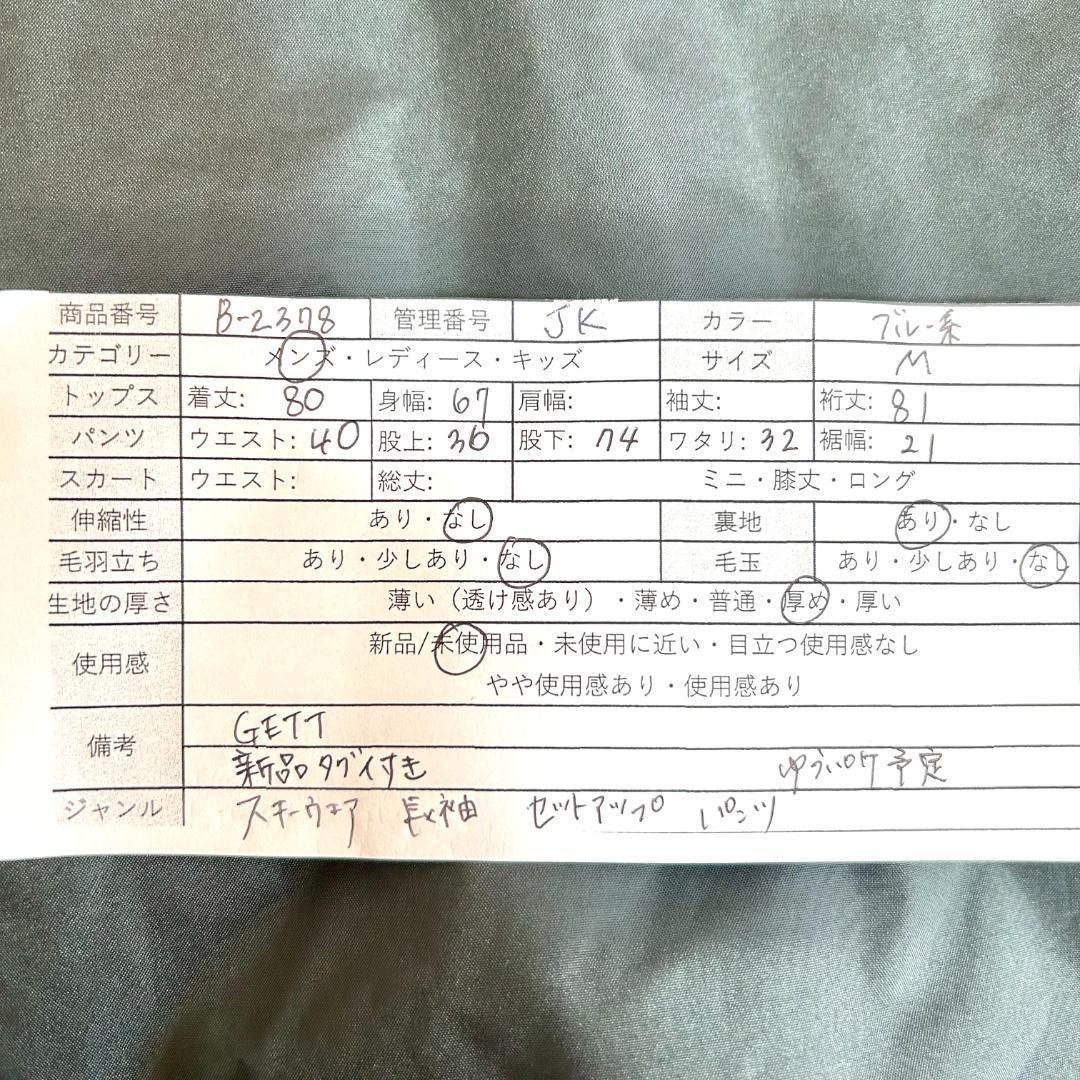 商品番号 B-2378 管理番号 JK カラー ブルー系
カテゴリー メンズ・レディース・キッズ サイズ M
トップス 着丈: 80 身幅: 67 肩幅: 袖丈: 裄丈: 81
パンツ ウエスト: 40 股上: 36 股下: 74 ワタリ: 32 裾幅: 21
スカート ウエスト: 総丈: ミニ・膝丈・ロング
伸縮性 あり・なし 裏地 あり・なし
毛羽立ち あり・少しあり・なし 毛玉 あり・少しあり・なし
生地の厚さ 薄い（透け感あり）・薄め・普通・厚め・厚い
使用感 新品/未使用品・未使用に近い・目立つ使用感なし
やや使用感あり・使用感あり
備考 GETT
新品タグイすき 予定
ジャンル スキーウェア 長袖 セットアップ パンツ